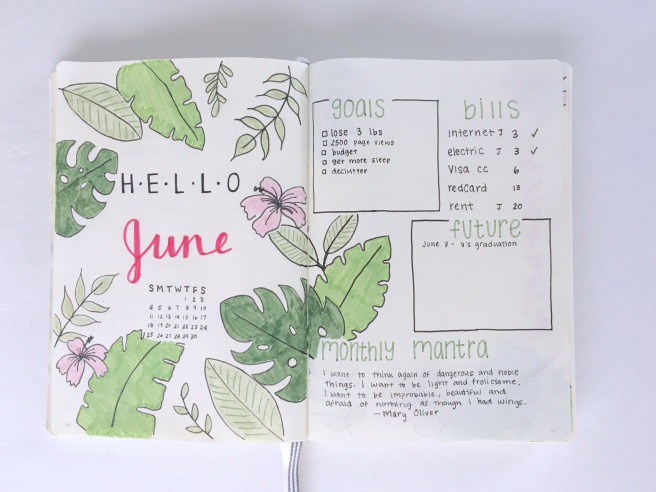 H·E·L·L·O
June
S M T W T F S
1 2 3
4 5 6 7 8 9 10
11 12 13 14 15 16 17
18 19 20 21 22 23 24
25 26 27 28 29 30
goals
lose 3 lbs
2500 page views
budget
get more sleep
declutter
bills
internet J 3 ✓
electric J 3 ✓
Visa cc 6
redcard 13
rent J 20
future
June 3 - V's graduation
monthly mantra
I want to think again of dangerous and noble
things. I want to be light and frolicsome.
I want to be improbable, beautiful and
afraid of nothing as though I had wings.
—Mary Oliver